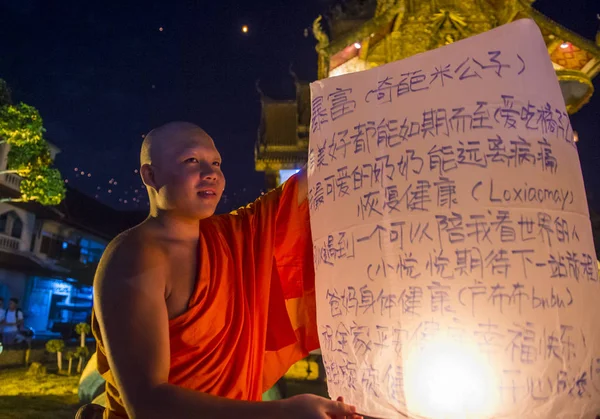 暴富（奇葩米公子）
美好都能如期而至（爱吃橘子
最可爱的奶奶能远离病痛
恢复健康（Loxiaomay）
遇到一个可以陪我看世界的人
（小悦悦期待下一站旅程
爸妈身体健康（卢布布bnbu）
祝全家平安健康幸福快乐
健康 开心